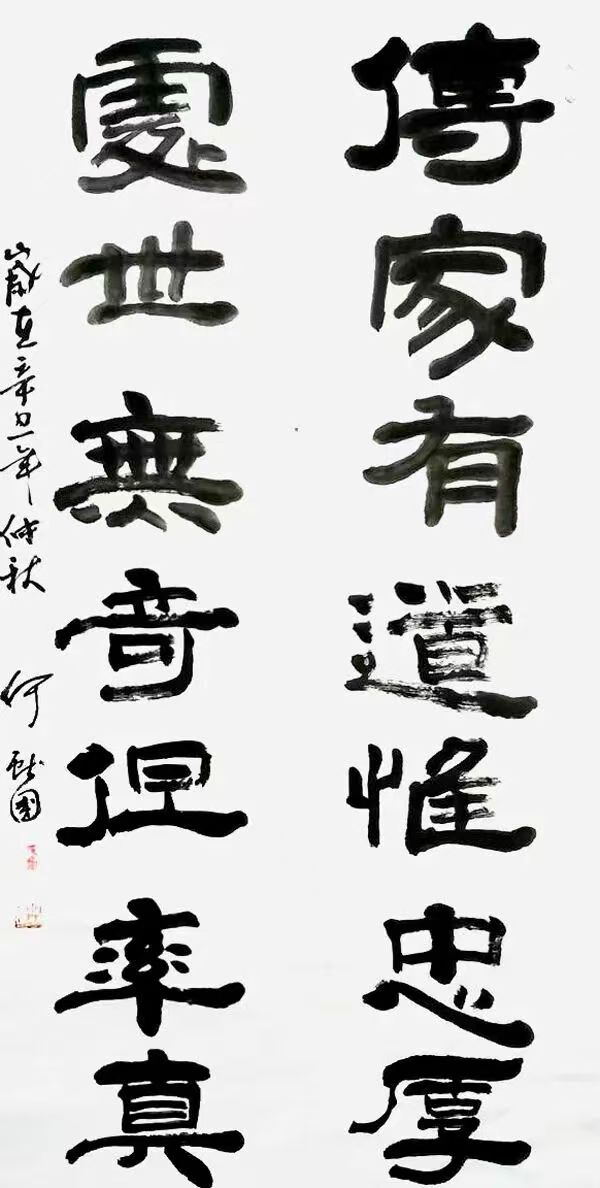 傳家有道惟忠厚
處世無奇但率真
歲在辛丑年仲秋
何